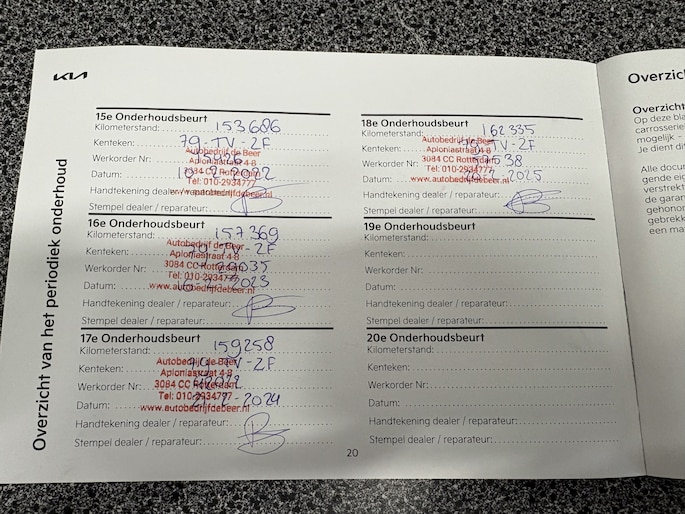 KIA
Overzicht van het periodiek onderhoud
15e Onderhoudsbeurt
Kilometerstand: 153686
Kenteken: 79-TV-2F
Werkorder Nr:
Datum: 2022
Handtekening dealer / reparateur:
Stempel dealer / reparateur:
Autobedrijf de Beer
Aploniastraat 4-8
3084 CC Rotterdam
Tel: 010-2934777
www.autobedrijfdebeer.nl
16e Onderhoudsbeurt
Kilometerstand: 157369
Kenteken: 79-TV-2F
Werkorder Nr:
Datum: 2023
Handtekening dealer / reparateur:
Stempel dealer / reparateur:
Autobedrijf de Beer
Aploniastraat 4-8
3084 CC Rotterdam
Tel: 010-2934777
www.autobedrijfdebeer.nl
17e Onderhoudsbeurt
Kilometerstand: 159258
Kenteken: 79-TV-2F
Werkorder Nr:
Datum: 2024
Handtekening dealer / reparateur:
Stempel dealer / reparateur:
Autobedrijf de Beer
Aploniastraat 4-8
3084 CC Rotterdam
Tel: 010-2934777
www.autobedrijfdebeer.nl
18e Onderhoudsbeurt
Kilometerstand: 162335
Kenteken: 79-TV-2F
Werkorder Nr:
Datum: 2025
Handtekening dealer / reparateur:
Stempel dealer / reparateur:
Autobedrijf de Beer
Aploniastraat 4-8
3084 CC Rotterdam
Tel: 010-2934777
www.autobedrijfdebeer.nl
19e Onderhoudsbeurt
Kilometerstand:
Kenteken:
Werkorder Nr:
Datum:
Handtekening dealer / reparateur:
Stempel dealer / reparateur:
20e Onderhoudsbeurt
Kilometerstand:
Kenteken:
Werkorder Nr:
Datum:
Handtekening dealer / reparateur:
Stempel dealer / reparateur:
20
Overzic
Overzicht
Op deze bla
carrosserie
mogelijk -
Je dient di
Alle docu
gende eig
verstrekt
de garan
gehonor
gebrekk
een mat